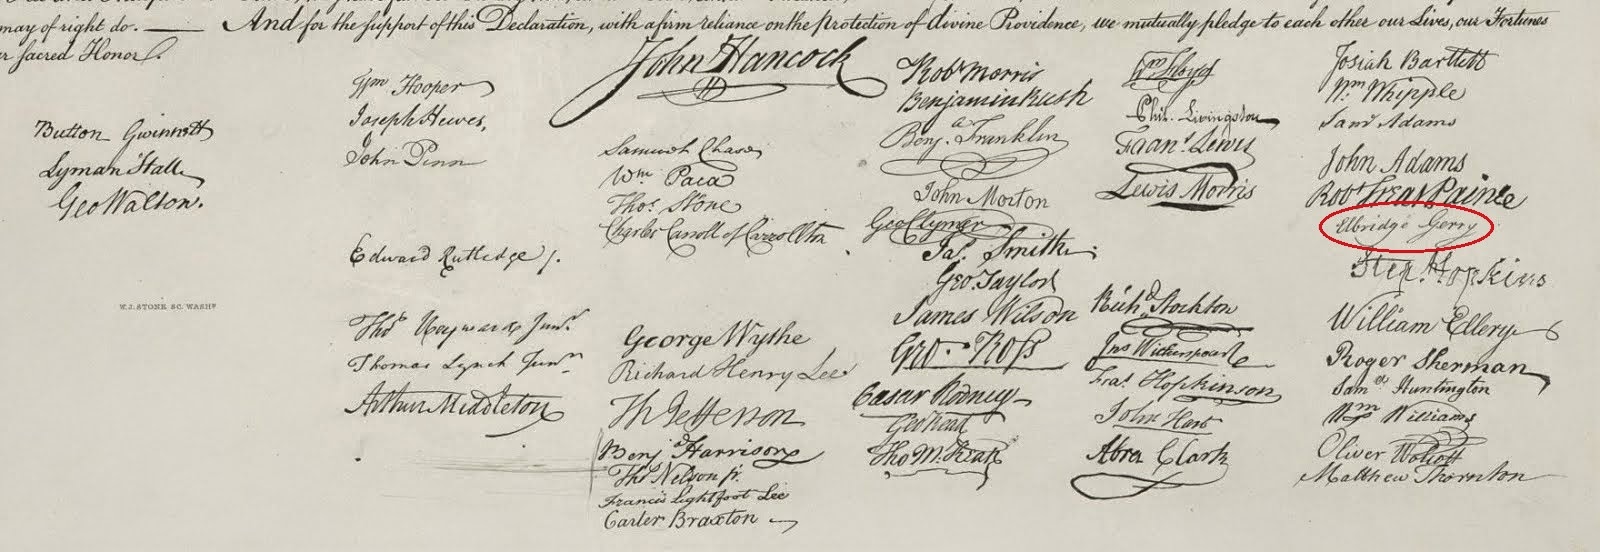 may of right do. — And for the support of this Declaration, with a firm reliance on the protection of divine Providence, we mutually pledge to each other our Lives, our Fortunes
r sacred Honor.
Button Gwinnett
Lyman Hall
Geo Walton.
W.J. STONE SC. WASHN
Wm Hooper
Joseph Hewes,
John Penn
Edward Rutledge /.
Thos Heyward Junr.
Thomas Lynch Junr.
Arthur Middleton
John Hancock
Samuel Chase
Wm. Paca
Thos. Stone
Charles Carroll of Carrollton
George Wythe
Richard Henry Lee
Th Jefferson
Benj Harrison
Thos Nelson jr.
Francis Lightfoot Lee
Carter Braxton
Robt Morris
Benjamin Rush
Benja. Franklin
John Morton
Geo Clymer
Jas. Smith
Geo. Taylor
James Wilson
Geo. Ross
Caesar Rodney
Geo Read
Tho M:Kean
Wm Floyd
Phil. Livingston
Frans. Lewis
Lewis Morris
Richd. Stockton
Jno Witherspoon
Fras. Hopkinson
John Hart
Abra Clark
Josiah Bartlett
Wm. Whipple
Saml Adams
John Adams
Robt Treat Paine
Elbridge Gerry
Step. Hopkins
William Ellery
Roger Sherman
Saml. Huntington
Wm. Williams
Oliver Wolcott
Matthew Thornton